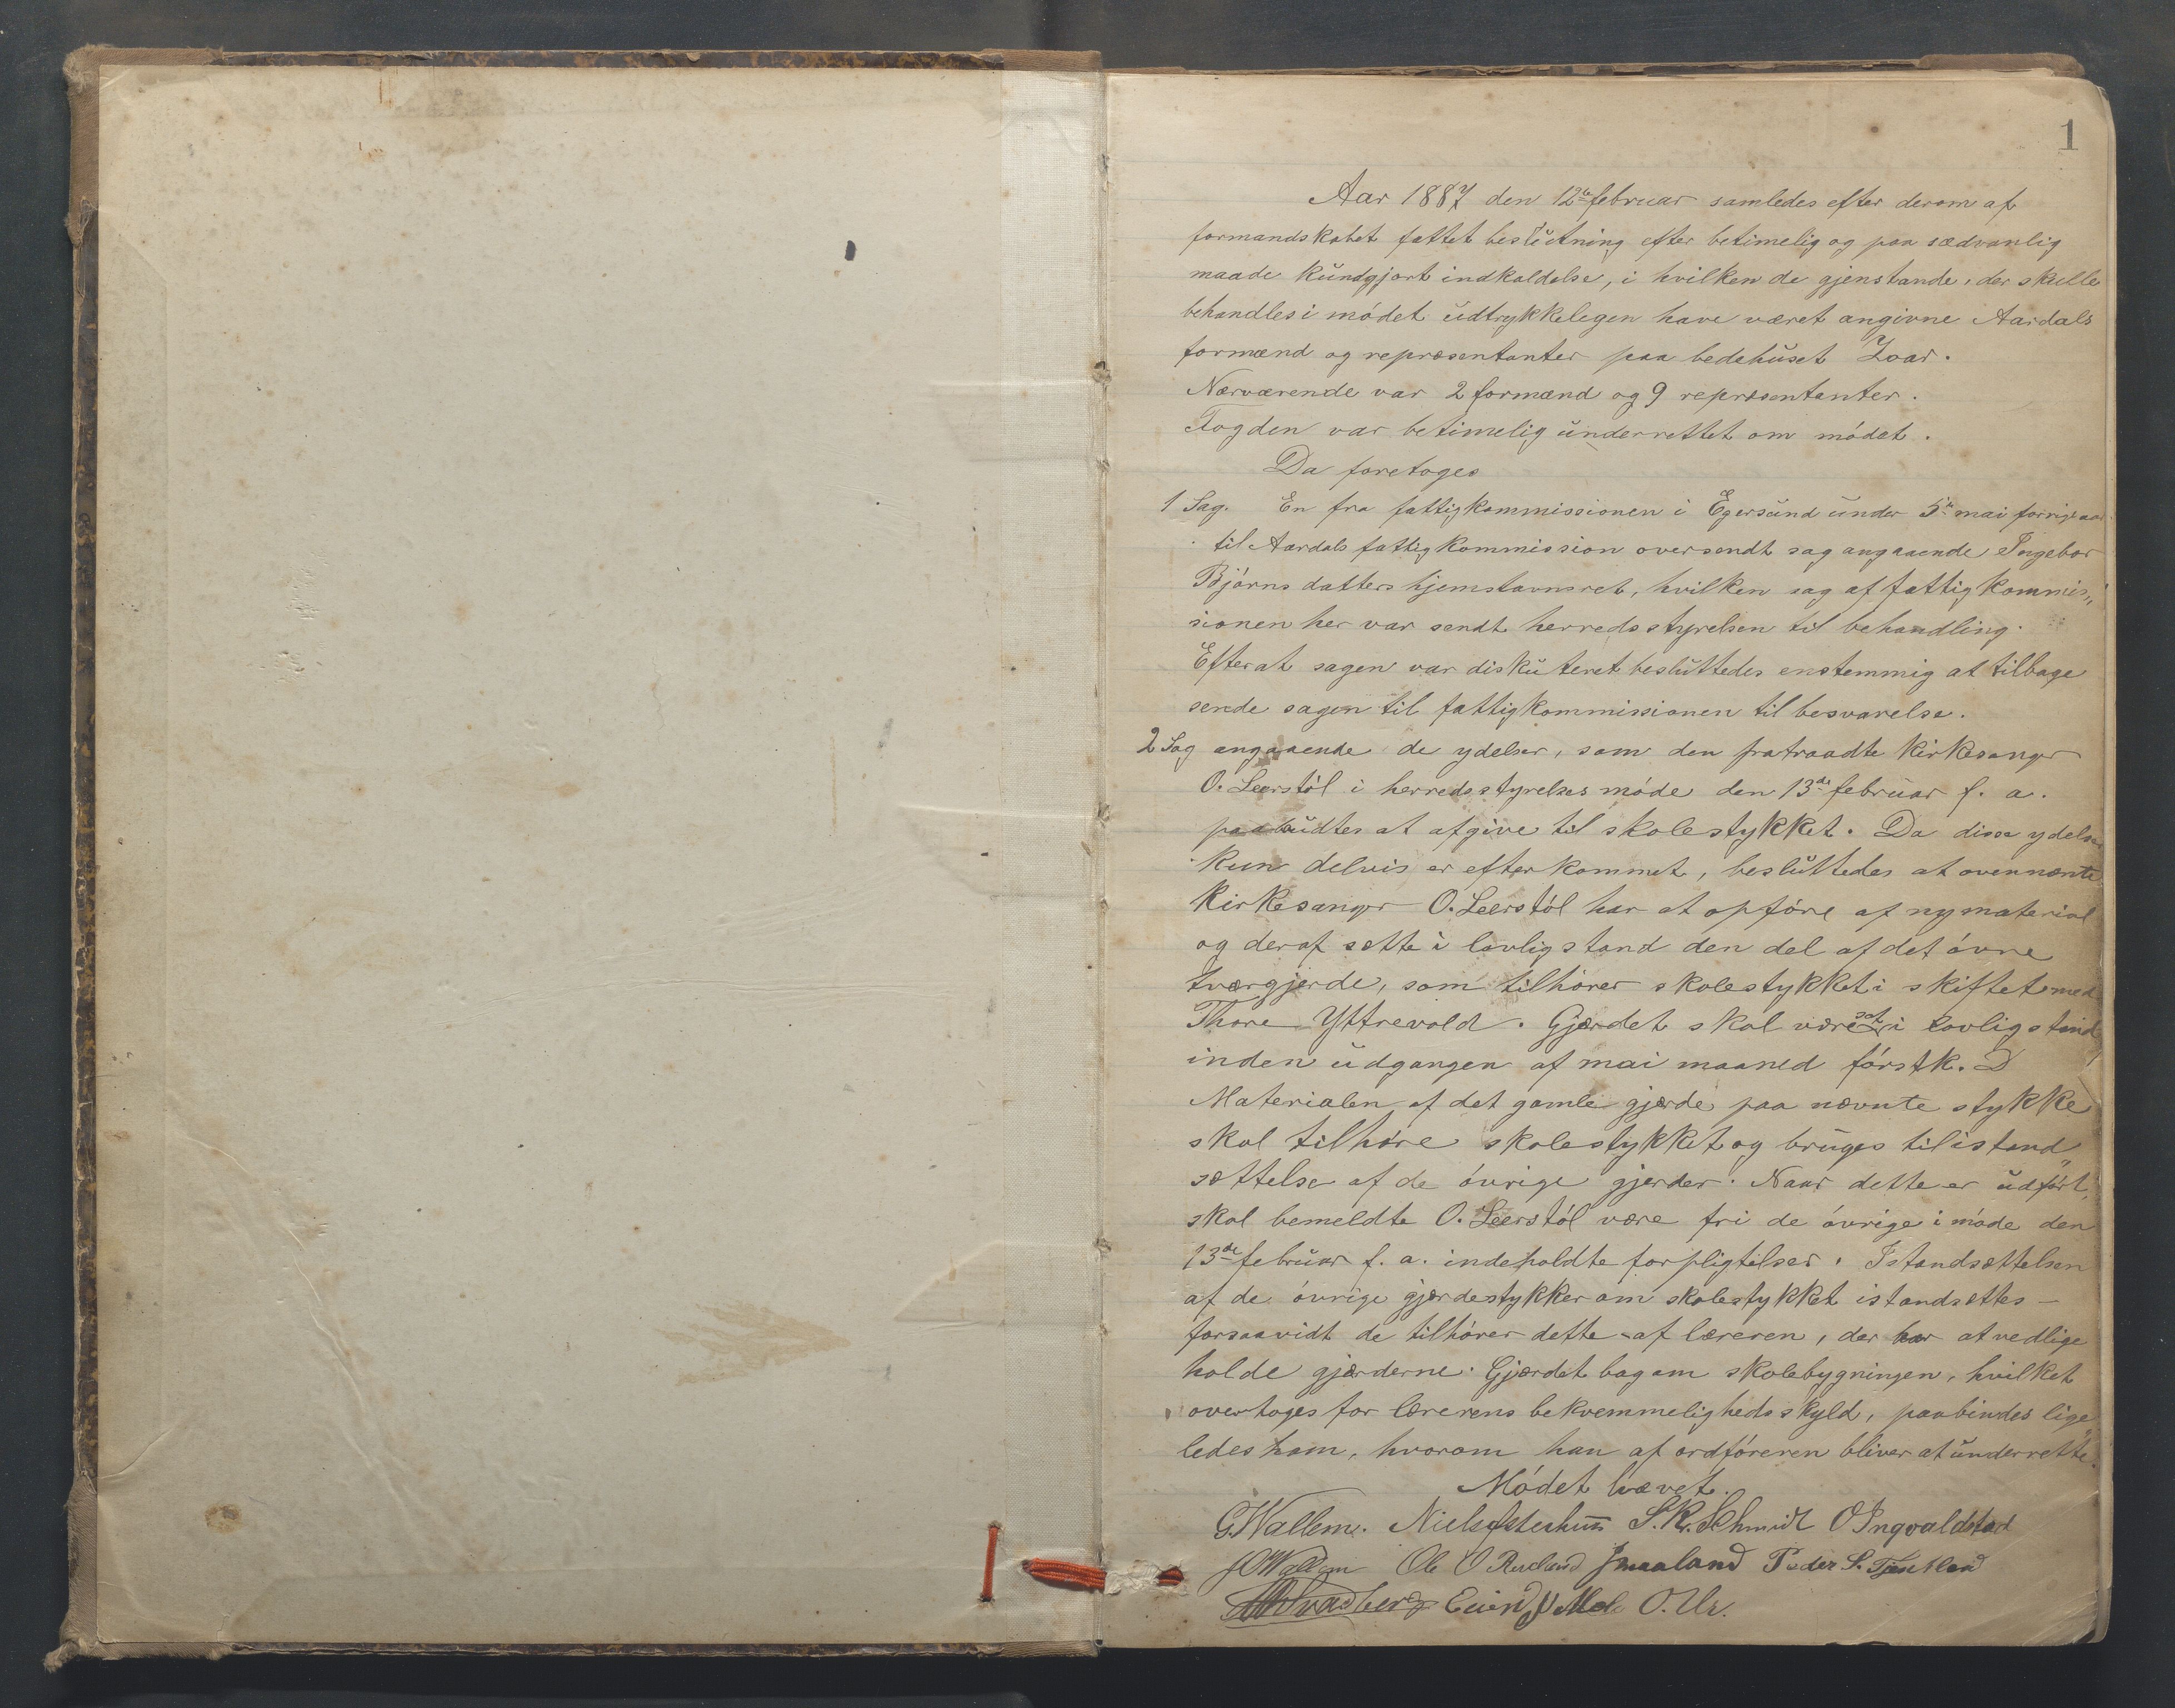 1
Aar 1887 den 12te februar samledes efter derom af
formandskabet fattet beslutning efter betimelig og paa sædvanlig
maade kundgjort indkaldelse, i hvilken de gjenstande, der skulle
behandles i mödet udtrykkelegen have været angivne Aardals
formænd og repræsentanter paa bedehuset Zoar.
Nærværende var 2 formænd og 9 repræsentanter.
Fogden var betimelig underrettet om mödet.
Da foretoges
1 Sag. En fra fattigkommissionen i Egersund under 5te mai forrige aar
til Aardals fattigkommission oversendt sag angaaende Ingebor
Björnsdatters hjemstavnsret, hvilken sag af fattigkommis„
sionen her var sendt herredsstyrelsen til behandling.
Efter at sagen var diskuteret besluttedes enstemmig at tilbage
sende sagen til fattigkommissionen til besvarelse.
2 Sag angaaende de ydelser, som den fratraadte kirkesanger
O. Leerstöl i herredsstyrelses möde den 13de februar f. a.
paabudtes at afgive til skolestykket. Da disse ydelser
kun delvis er efterkommet, besluttedes at ovennævnte
kirkesanger O. Leerstöl har at opföre af ny material
og deraf sætte i lovlig stand den del af det övre
tværgjerde, som tilhörer skolestykket i skiftet med
Thore Yttrevold. Gjærdet skal være sat i lovlig stand
inden udgangen af mai maaned förstk. D
Materialen af det gamle gjærde paa nævnte stykke
skal tilhöre skolestykket og bruges til istand„
sættelse af de övrige gjerder. Naar dette er udfört,
skal bemeldte O. Leerstöl være fri de övrige i möde den
13de februar f. a. indeholdte forpligtelser. Istandsættelsen
af de övrige gjærdestykker om skolestykket istandsættes –
forsaavidt de tilhörer dette – af læreren, der har at vedlige
holde gjærderne. Gjærdet bagom skolebygningen, hvilket
overtoges for lærerens bekvemmeligheds skyld, paabindes lige„
ledes ham, hvorom han af ordföreren bliver at underrette.
Mödet hævet.
G. Wallem. Niels S. R. Schmidt O Ingvaldstad
J O Wallem Ole O Riveland Maaland Peder S. Tjentland
Svadberg Eivind Mele O. Ur.